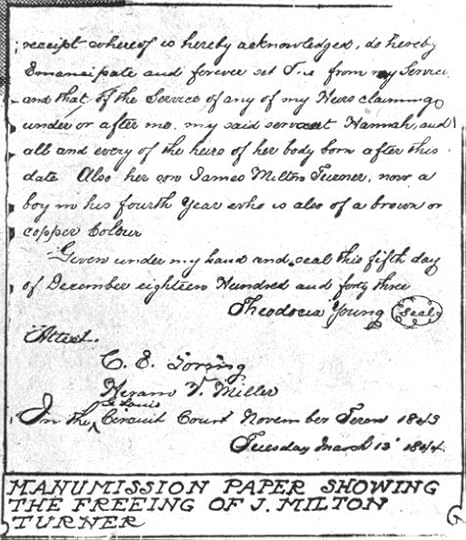 receipt whereof is hereby acknowledged, do hereby
Emancipate and forever set Free from my Service
and that of the Service of any of my Heirs claiming
under or after me. my said servant Hannah, and
all and every of the heirs of her body born after this
date Also her son James Milton Turner, now a
boy in his fourth Year who is also of a brown or
copper Colour
Given under my hand and seal this fifth day
of December eighteen Hundred and forty three
Theodocia Young Seal
Attest.
C. E.
Heram V. Miller
St Louis
In the Circuit Court November Term 1843
Tuesday March 13th 1844.
MANUMISSION PAPER SHOWING
THE FREEING OF J. MILTON
TURNER